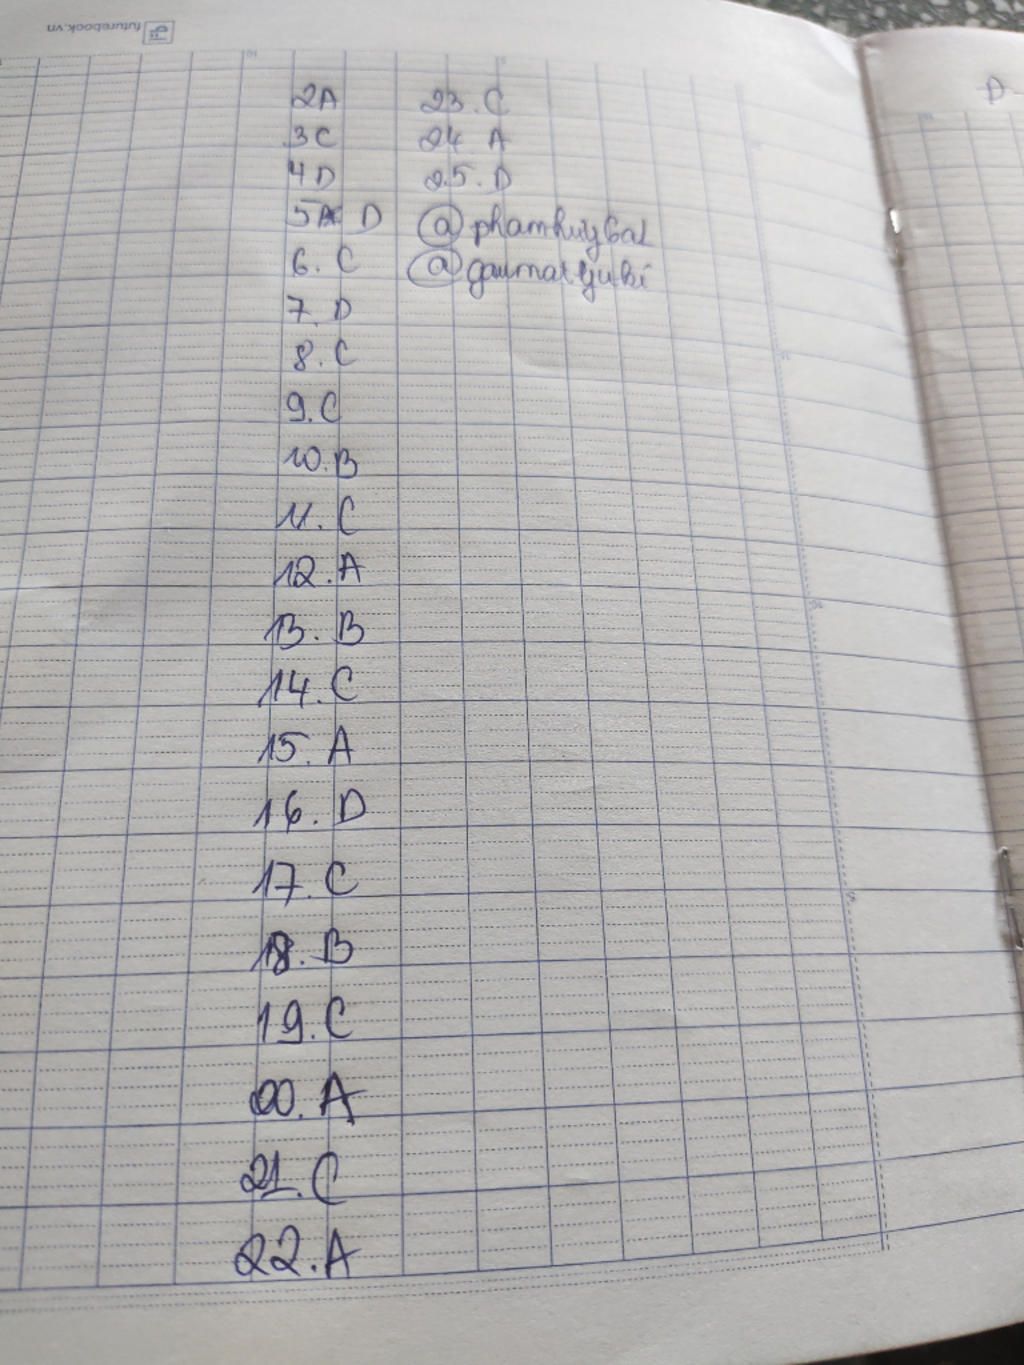 futurebook.vn
2A
3C
4D
5A D
6. C
7. D
8. C
9. C
10. B
11. C
12. A
13. B
14. C
15. A
16. D
17. C
18. B
19. C
20. A
21. C
22. A
23. C
24 A
25. D
@phamhuy6a1
D